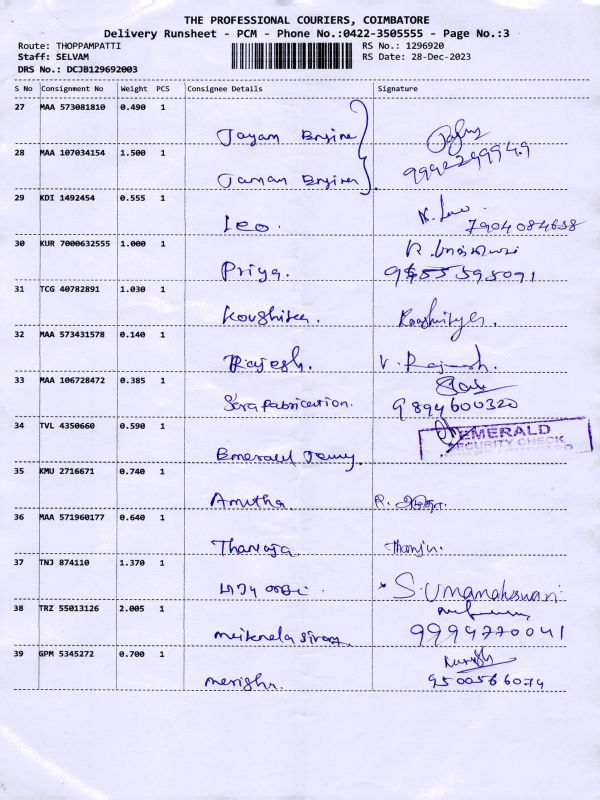 THE PROFESSIONAL COURIERS, COIMBATORE
Delivery Runsheet - PCM - Phone No.:0422-3505555 - Page No.:3
Route: THOPPAMPATTI RS No.: 1296920
Staff: SELVAM RS Date: 28-Dec-2023
DRS No.: DCJB129692003
S No Consignment No Weight PCS Consignee Details Signature
27 MAA 573081810 0.490 1
Jayam Engine
28 MAA 107034154 1.500 1
Engine
29 KDI 1492454 0.555 1
Leo. 7904084638
30 KUR 7000632555 1.000 1
Priya.
31 TCG 40782891 1.030 1
32 MAA 573431578 0.140 1
Rajesh. V. Rajesh.
33 MAA 106728472 0.385 1
Sera fabrication. 9894600320
34 TVL 4350660 0.590 1
EMERALD
SECURITY CHECK
Emerald
35 KMU 2716671 0.740 1
Amutha R.
36 MAA 571960177 0.640 1
Thanuja Thanju.
37 TNJ 874110 1.370 1
S. Umamaheswari
38 TRZ 55013126 2.005 1
9994770041
39 GPM 5345272 0.700 1
9500566074